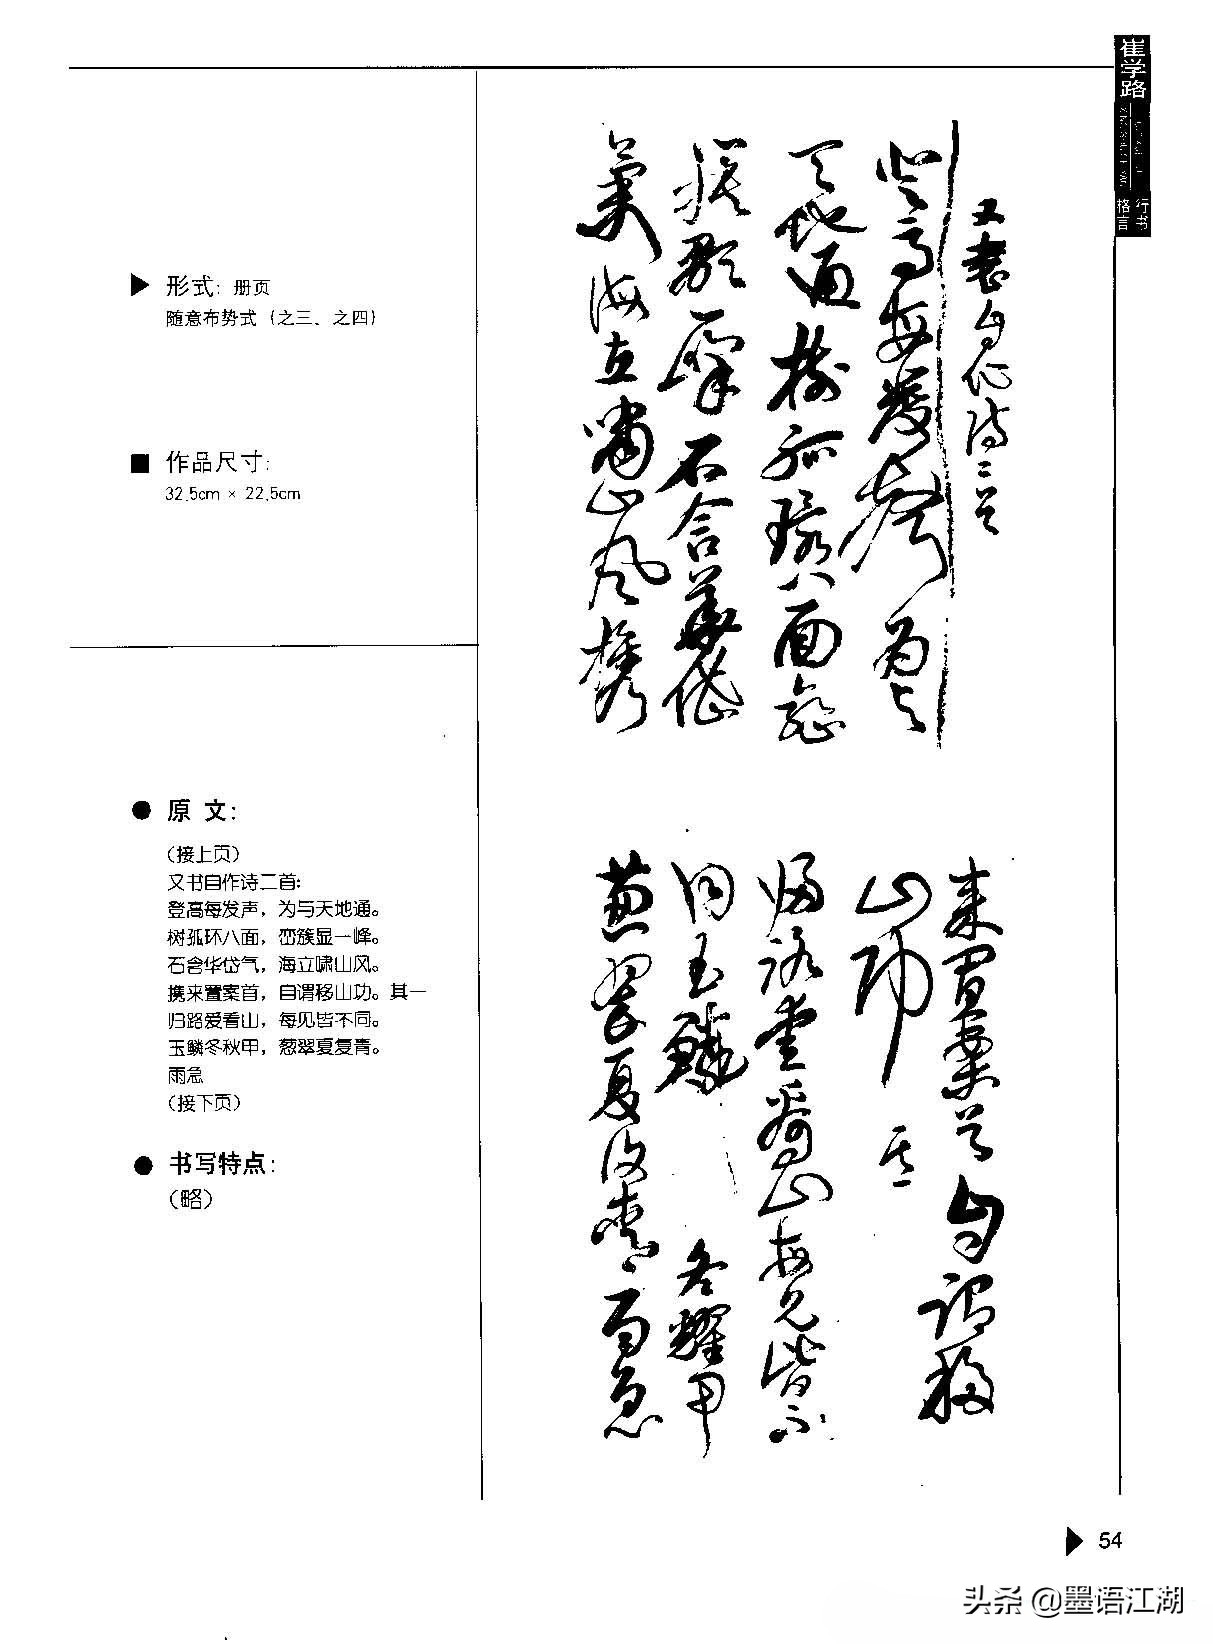 崔学路
行书
格言
形式：册页
随意布势式（之三、之四）
作品尺寸：
32.5cm × 22.5cm
原 文：
（接上页）
又书自作诗二首：
登高每发声，为与天地通。
树孤环八面，峦簇显一峰。
石含华岱气，海立啸山风。
携来置案首，自谓移山功。其一
归路爱看山，每见皆不同。
玉鳞冬秋甲，葱翠夏复青。
雨急
（接下页）
书写特点：
（略）
又書自作诗二首
登高每發聲為与
天地通樹孤環八面巒
簇顯一峰石含華岱
氣海立嘯山風携
来置案首自謂移
山功 其一
归路愛看山每见皆不
同玉鱗冬耀甲
葱翠夏復青雨急
54
头条 @墨语江湖